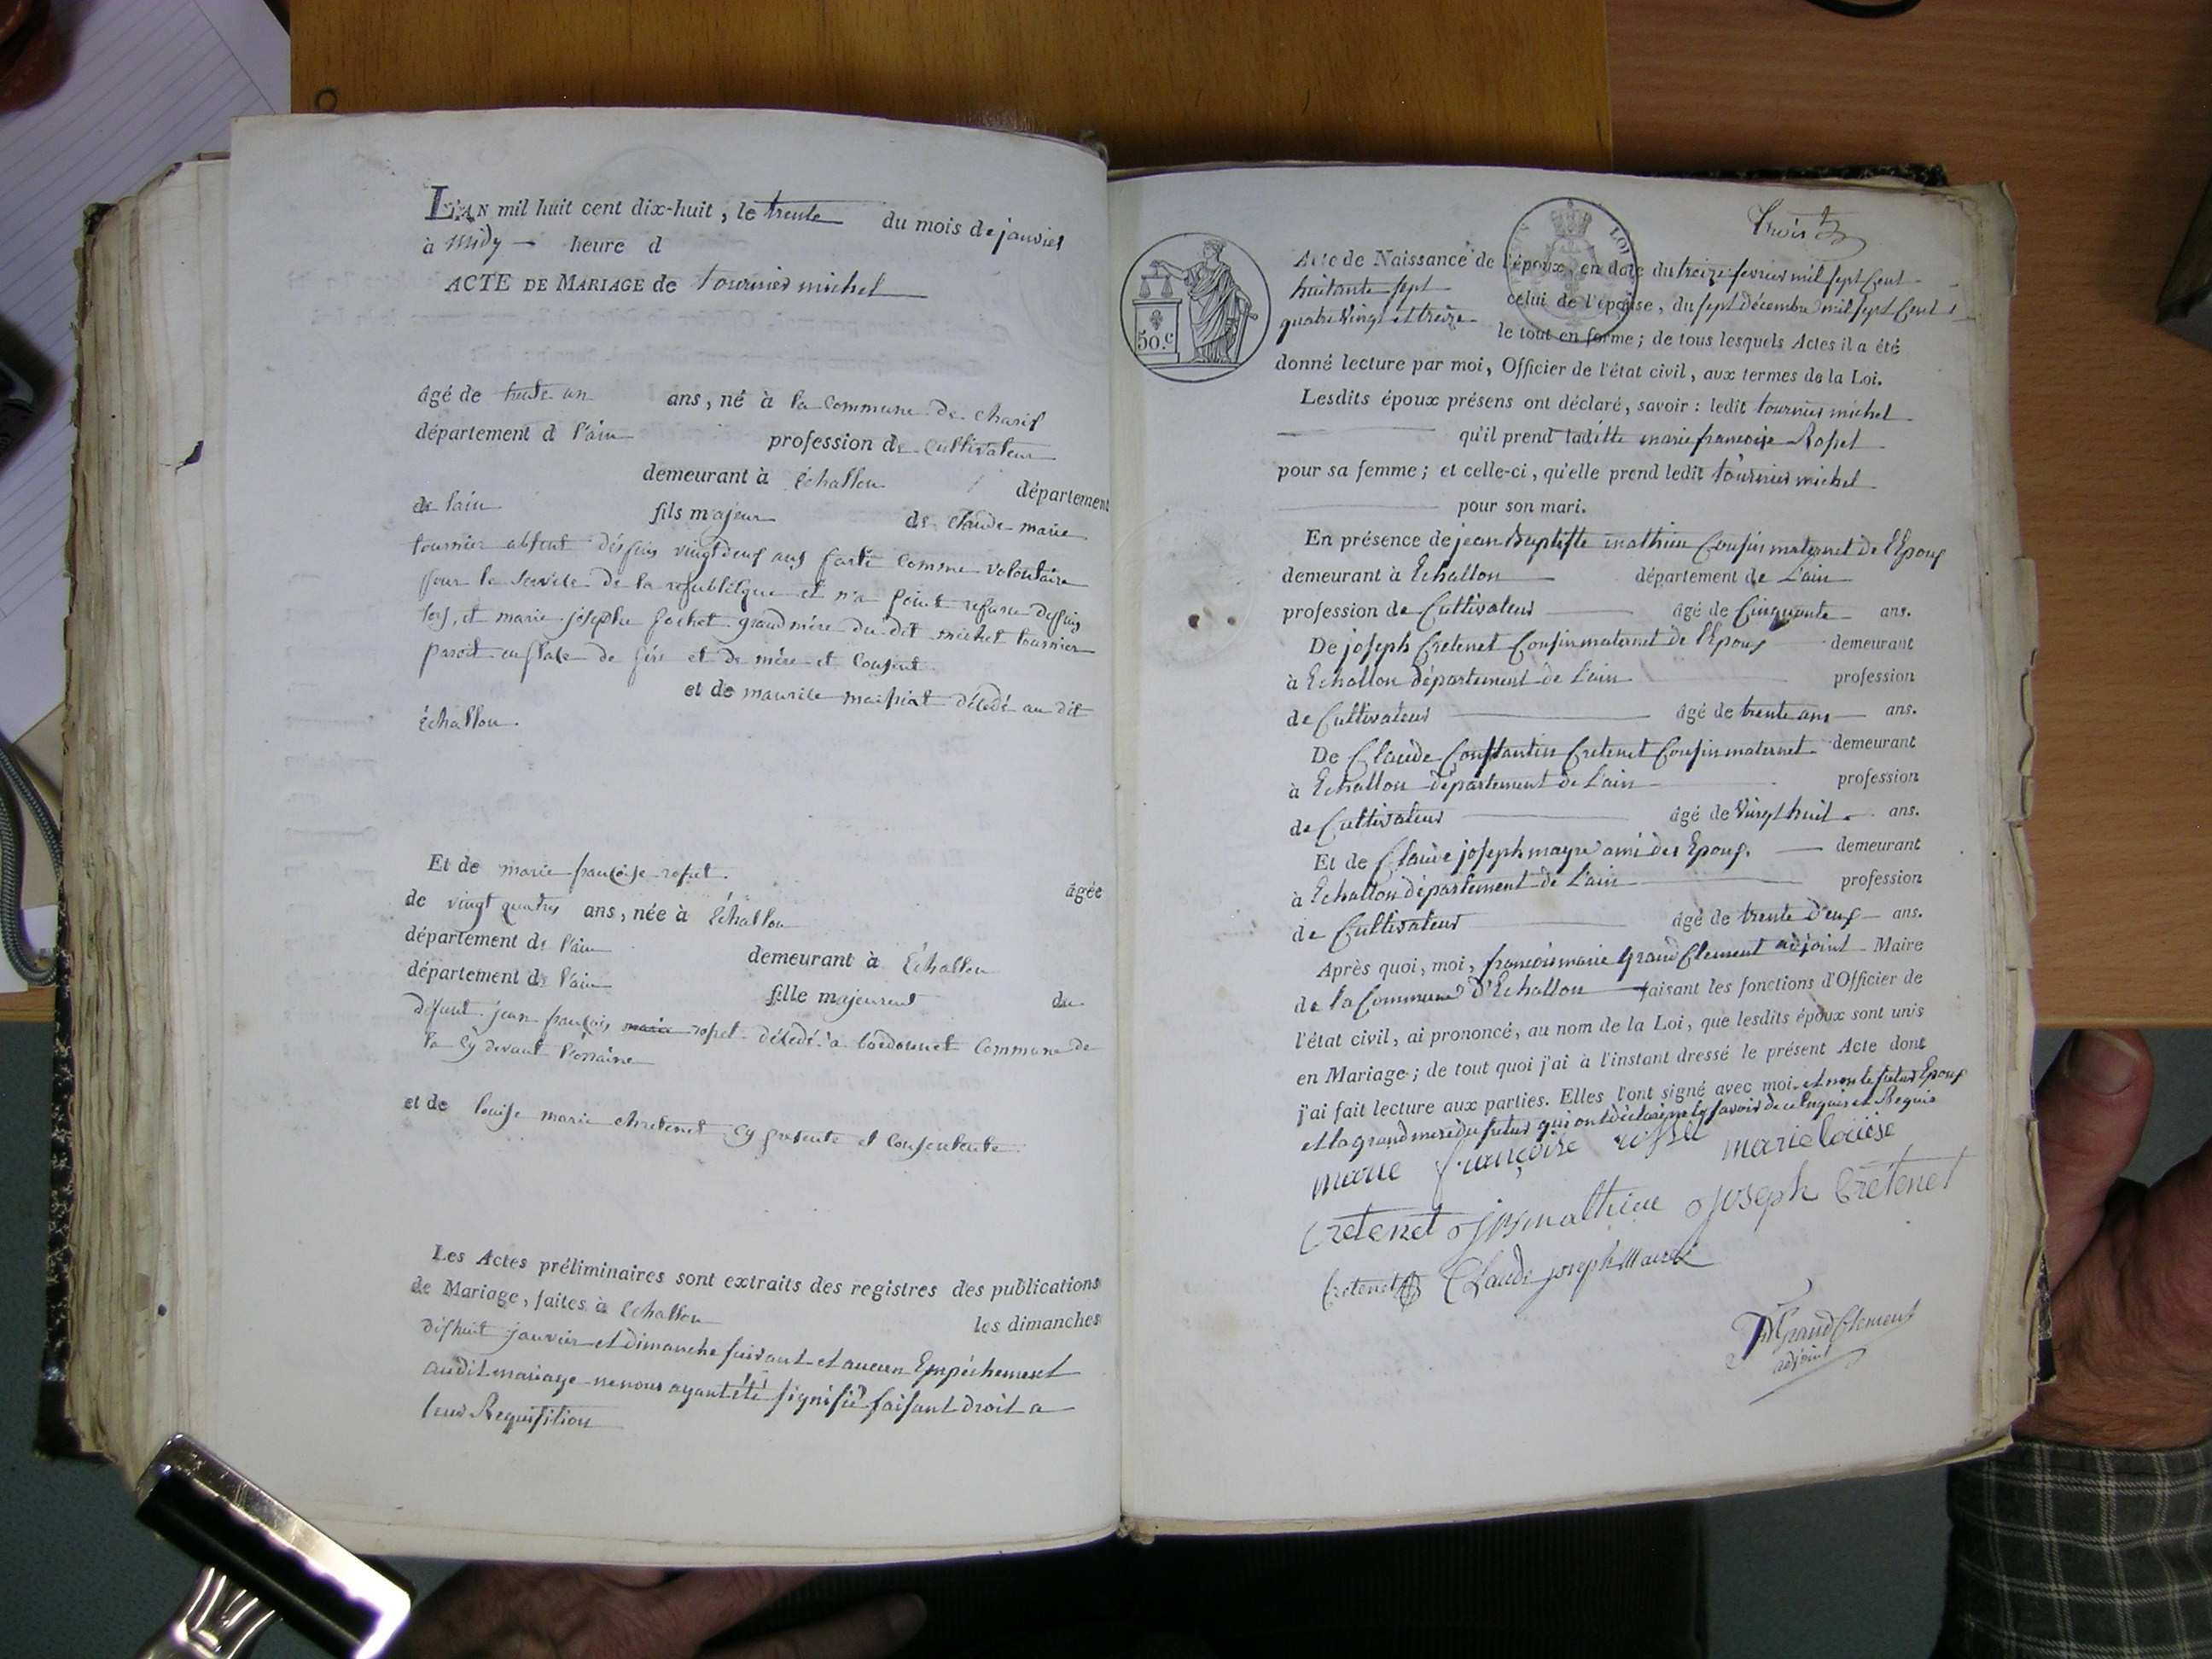 L'AN mil huit cent dix-huit, le trente du mois de janvier
à midy heure d
ACTE DE MARIAGE de tournier michel
âgé de trente un ans, né à la commune de charix
département d l'ain profession de cultivateur
demeurant à Échallon département
de lain fils majeur de claude marie
tournier absent depuis vingt deux ans parti comme volontaire
pour le service de la republique et n'a point reparu depuis
lors, et marie josephe pochet grand mère du dit michel tournier
paroit en place de père et de mère et consent
et de maurice maissiat décédé au dit
échallon.
Et de marie françoise rosset. âgée
de vingt quatre ans, née à Échallon
département de l'ain demeurant à Échallon
département de l'ain fille majeure du
défunt jean françois rosset décédé à commune de
la cy devant lorraine
et de louise marie chretenet cy presente et consentente
Les Actes préliminaires sont extraits des registres des publications
de Mariage, faites à echallon les dimanches
dishuit janvier et dimanche suivant et aucun Empéchement
audit mariage ne nous ayant été signifié faisant droit a
leur Requisition
trois
Acte de Naissance de l'époux, en date du treize fevrier mil sept cent
huitante sept celui de l'épouse, du sept décembre mil sept cent
quatre vingt et treize le tout en forme; de tous lesquels Actes il a été
donné lecture par moi, Officier de l'état civil, aux termes de la Loi.
50.c
Lesdits époux présens ont déclaré, savoir: ledit tournier michel
qu'il prend laditte marie francoise Rosset
pour sa femme; et celle-ci, qu'elle prend ledit tournier michel
pour son mari.
En présence de jean Baptiste mathieu Cousin maternet de l'Epoux
demeurant à Echallon département de L'ain
profession de Cultivateur âgé de Cinquante ans.
De joseph Cretenet Cousin maternet de l'Epoux demeurant
à Echallon département de L'ain profession
de Cultivateur âgé de trente ans ans.
De Claude Constantin Cretenet Cousin maternet demeurant
à Echallon département de L'ain profession
de Cultivateur âgé de Vingt huit ans.
Et de Claude joseph mayre ami des Epoux. demeurant
à Echallon département de L'ain profession
de Cultivateur âgé de trente d'eux ans.
Après quoi, moi, francois marie Grand Clement adjoint Maire
de la Commune d'Echallon faisant les fonctions d'Officier de
l'état civil, ai prononcé, au nom de la Loi, que lesdits époux sont unis
en Mariage; de tout quoi j'ai à l'instant dressé le présent Acte dont
j'ai fait lecture aux parties. Elles l'ont signé avec moi. et non le futur Epoux
et la grand mere du futur qui ont déclaré ne le savoir de ce Enquis et Requis
marie françoise rosset marie louise
cretenet josmathieu joseph Crétenet
Cretenet Claude joseph Maire
GrandClement
adjoint